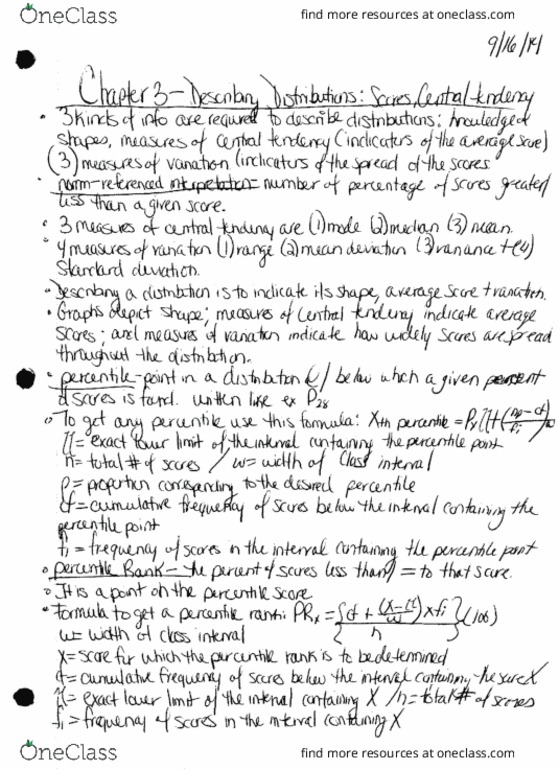 OneClass
find more resources at oneclass.com
9/16/14
Chapter 3 – Describing Distributions: Scores, Central tendency
• 3 kinds of info are required to describe distributions: knowledge of
shapes, measures of central tendency (indicators of the average score)
(3) measures of variation (indicators of the spread of the scores
• norm-referenced interpretation = number of percentage of scores greater/
less than a given score.
• 3 measures of central tendency are (1) mode (2) median (3) mean.
• 4 measures of variation (1) range (2) mean deviation (3) variance + (4)
Standard deviation.
• Describing a distribution is to indicate its shape, average score + variation.
• Graphs depict shape; measures of central tendency indicate average
scores; and measures of variation indicate how widely scores are spread
throughout the distribution.
• percentile - point in a distribution below which a given percent
of scores is found. written like ex P28
• To get any percentile use this formula: Xth percentile = Px ll + (np - cf / fi) w
ll = exact lower limit of the interval containing the percentile point
n = total # of scores / w = width of class interval
p = proportion corresponding to the desired percentile
cf = cumulative frequency of scores below the interval containing the
percentile point
fi = frequency of scores in the interval containing the percentile point
• percentile Rank – the percent of scores less than / = to that score.
• It is a point on the percentile score
• Formula to get a percentile rank: PRx = {cf + (X - ll / w) x fi / n} (100)
w = width of class interval
X = score for which the percentile rank is to be determined
cf = cumulative frequency of scores below the interval containing the score X
ll = exact lower limit of the interval containing X / n = total # of scores
fi = frequency of scores in the interval containing X
OneClass
find more resources at oneclass.com